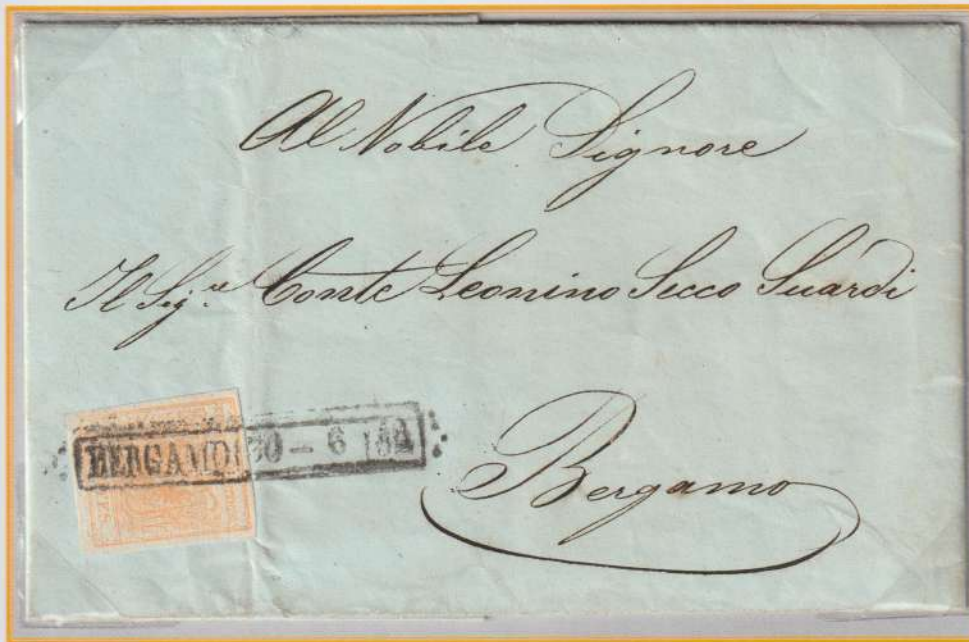 Al Nobile Signore
Il Sig.re Conte Leonino Secco Suardi
BERGAMO 30 - 6
Bergamo